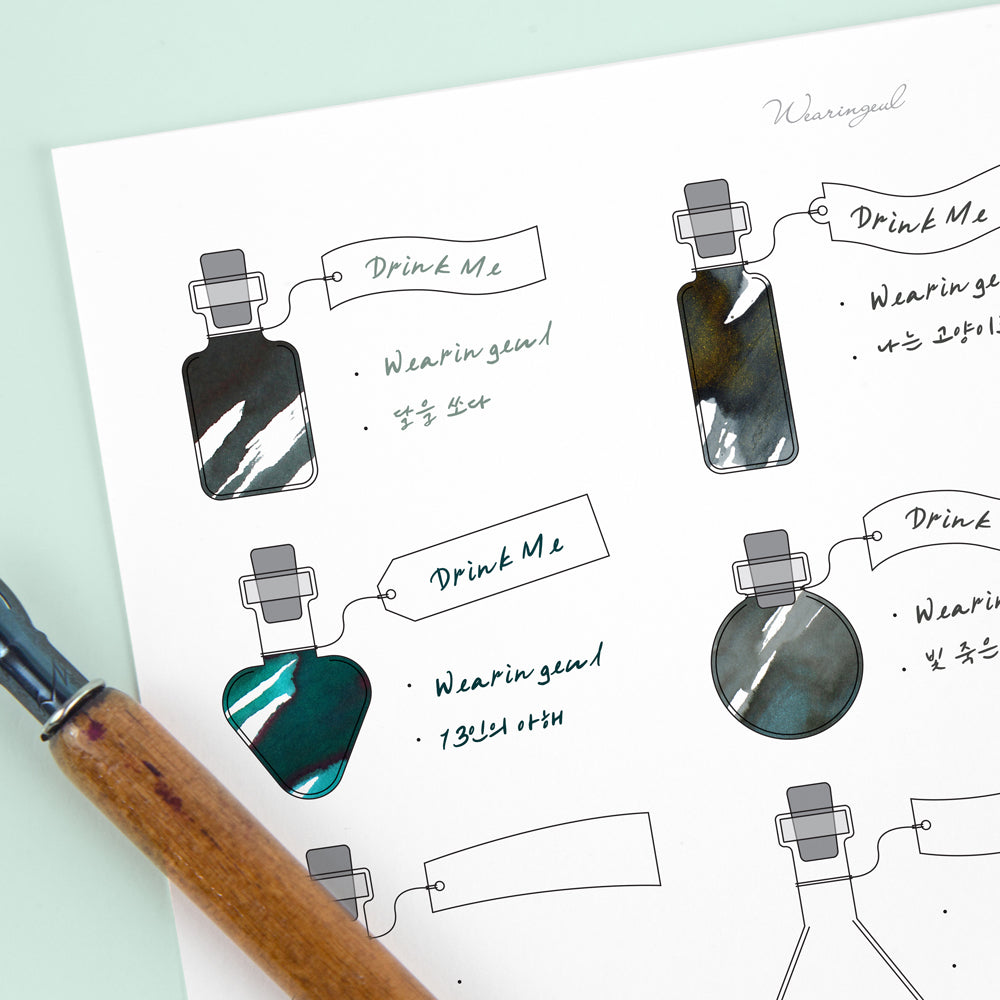 Wearingeul
Drink Me
Wearingeul
달을 쏘다
Drink Me
Wearinge
나는 고양이
Drink Me
Wearingeul
13인의 아해
Drink
Wearin
빛 죽은